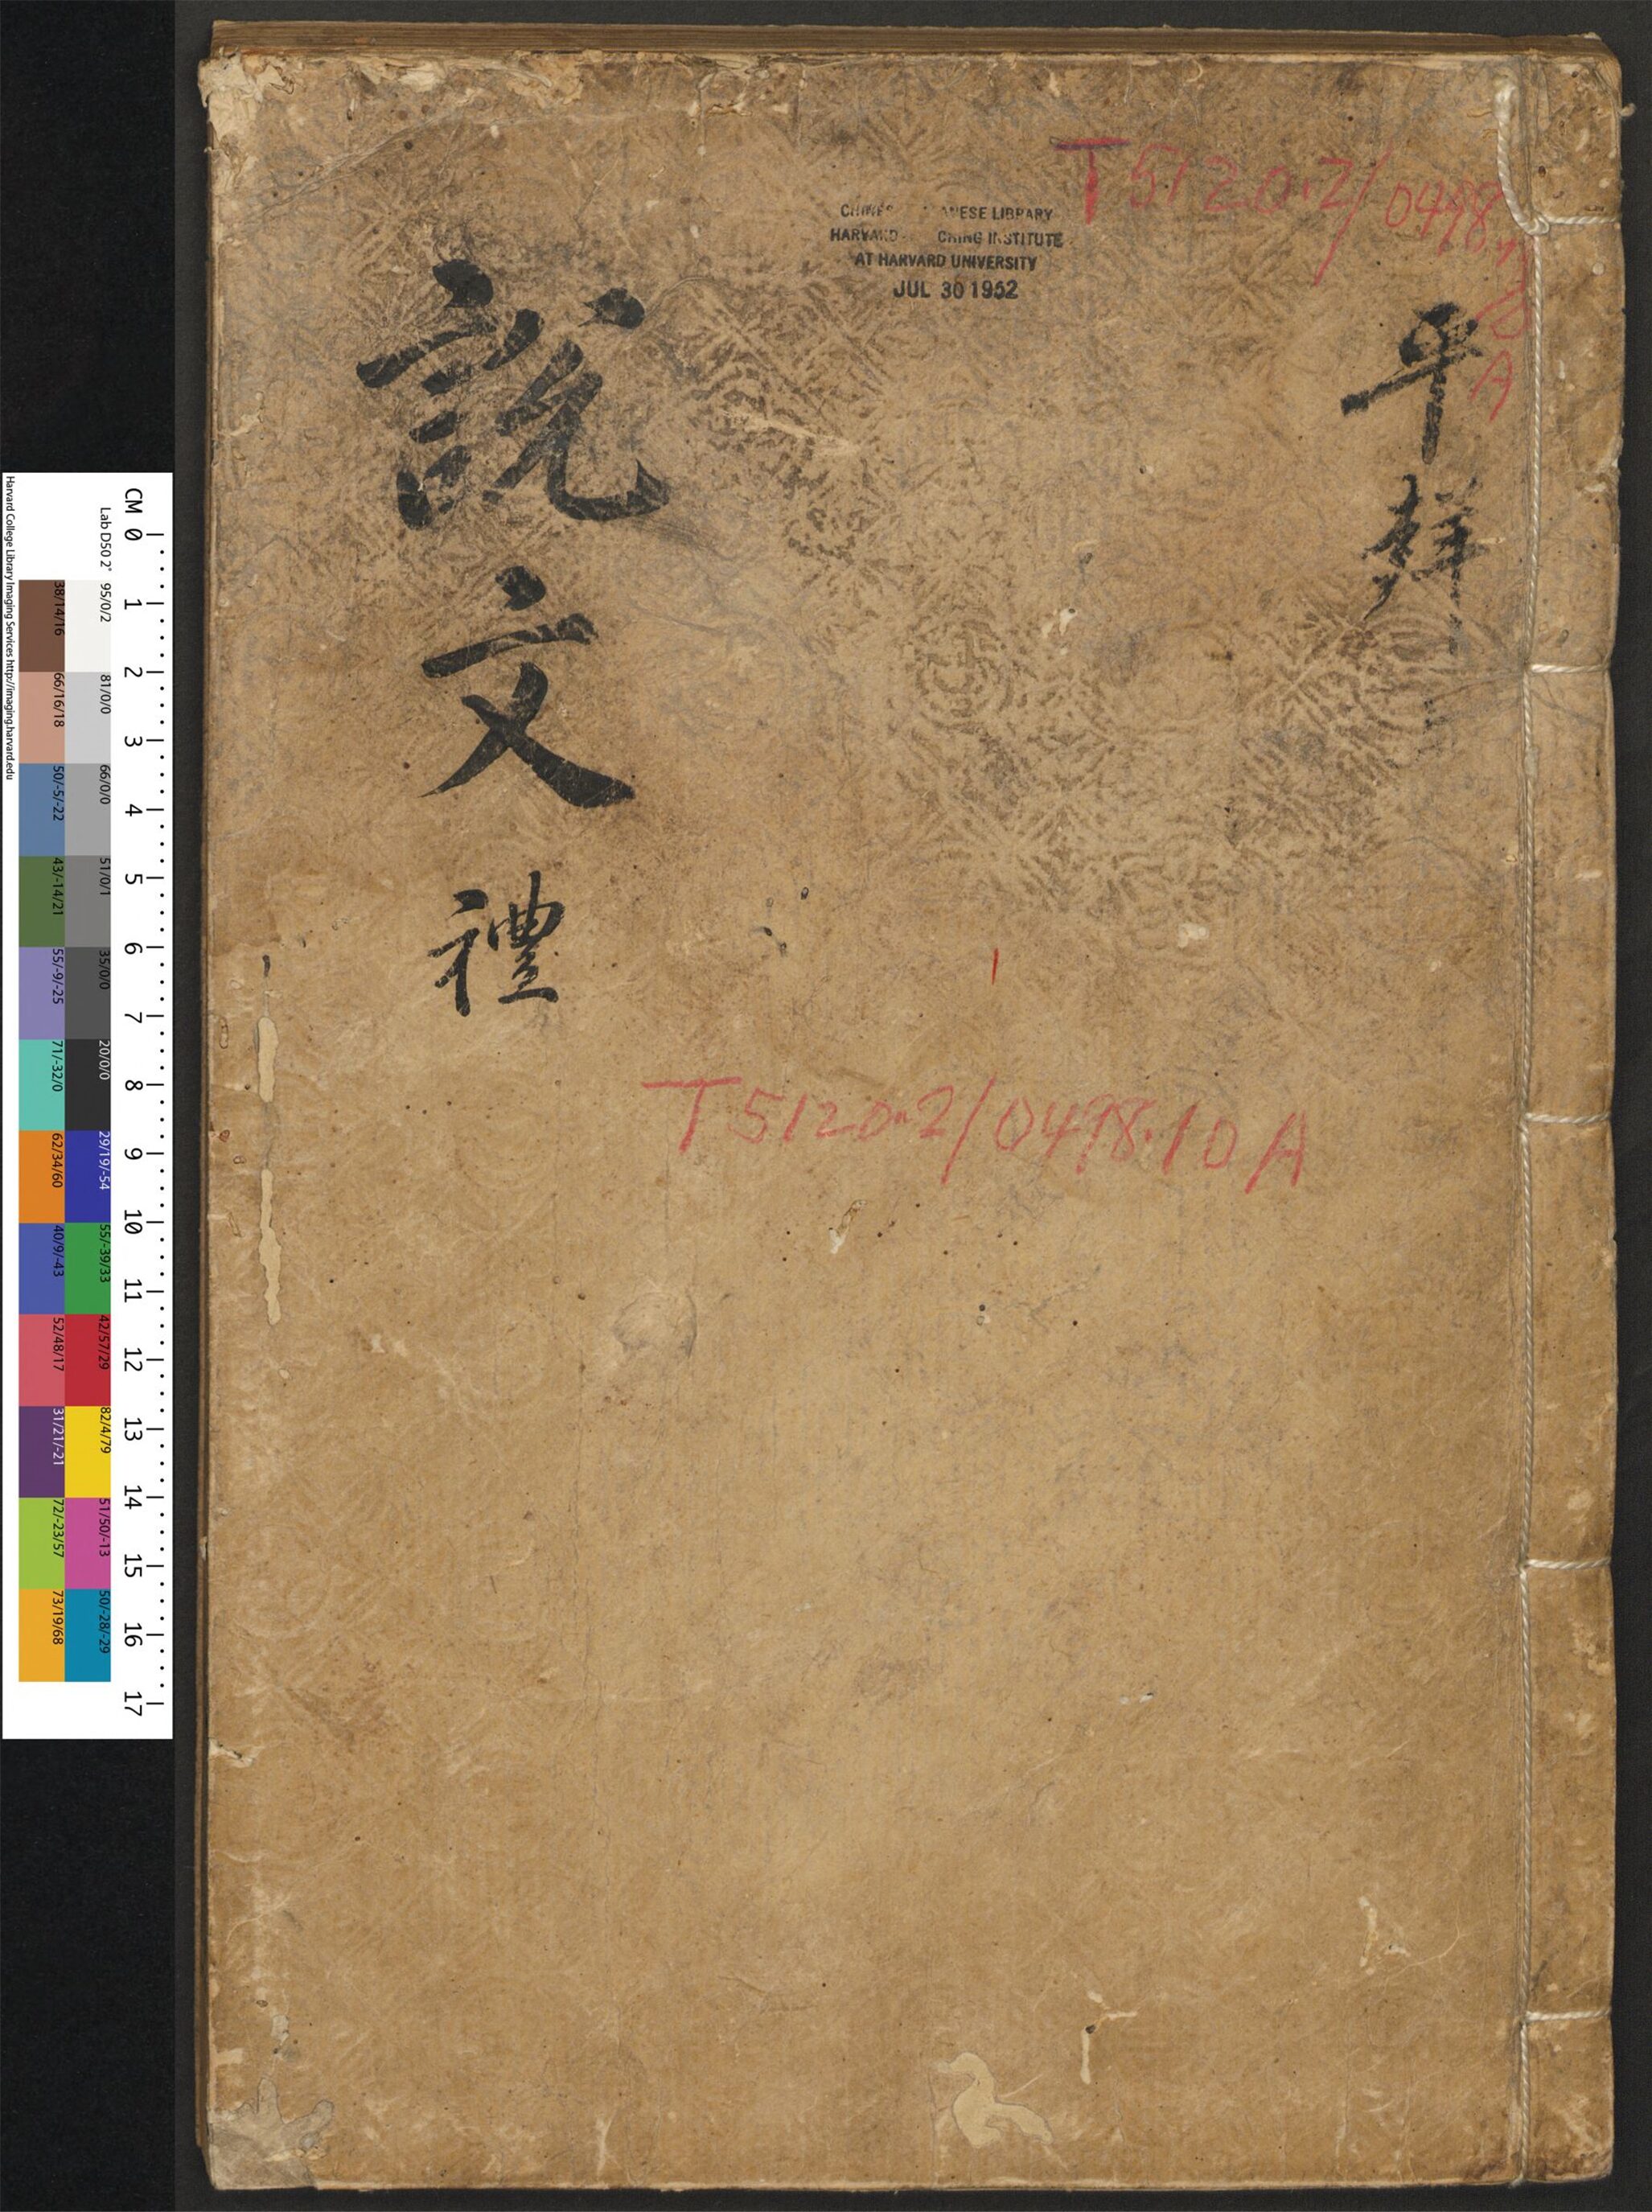 T5120.2/0498.10A
CHINES ANESE LIBRARY
HARVARD CHING INSTITUTE
AT HARVARD UNIVERSITY
JUL 30 1952
平
說文 禮
T5120.2/0498.10A
CM 0 1 2 3 4 5 6 7 8 9 10 11 12 13 14 15 16 17
Lab D50 2° 95/0/2 81/0/0 66/0/0 51/0/1 35/0/0 20/0/0 29/19/-54 55/-39/33 42/57/29 82/4/79 51/50/-13 50/-28/-29
38/14/16 66/16/18 50/-5/-22 43/-14/21 55/-9/-25 71/-32/0 62/34/60 40/9/-43 52/48/17 31/21/-21 72/-23/57 73/19/68
Harvard College Library Imaging Services http://imaging.harvard.edu